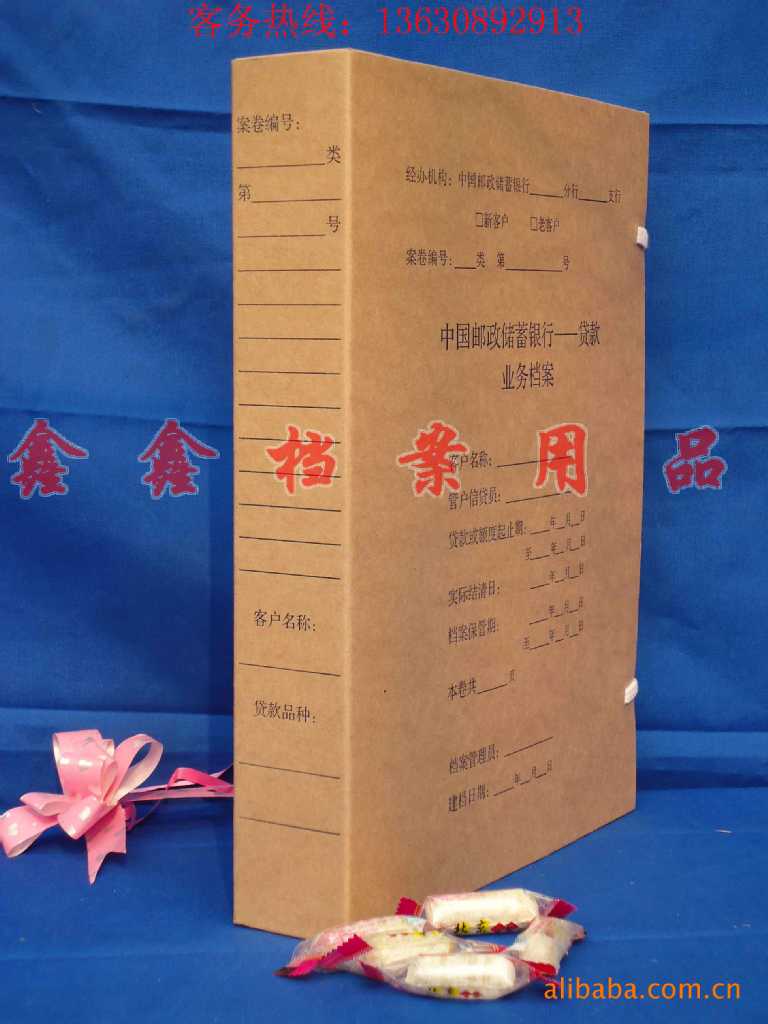 客务热线：13630892913
案卷编号：
________类
第________
________号
客户名称：
贷款品种：
经办机构：中国邮政储蓄银行______分行_____支行
□新客户 □老客户
案卷编号：___类 第________号
中国邮政储蓄银行——贷款
业务档案
鑫鑫档案用品
客户名称：________
管户信贷员：________
贷款或额度起止期：___年__月__日
至___年__月__日
实际结清日：___年__月__日
档案保管期：___年__月__日
至___年__月__日
本卷共_____页
档案管理员：________
建档日期：___年__月__日
alibaba.com.cn